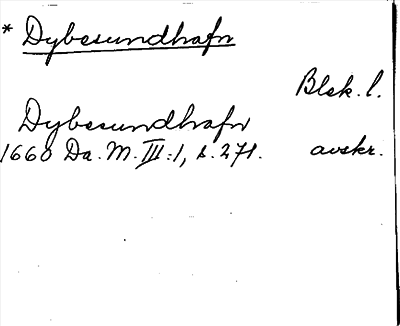 * Dybesundhafn
Blek. l.
Dybesundhafn
1660 Da. M. III:1, s. 271. avskr.